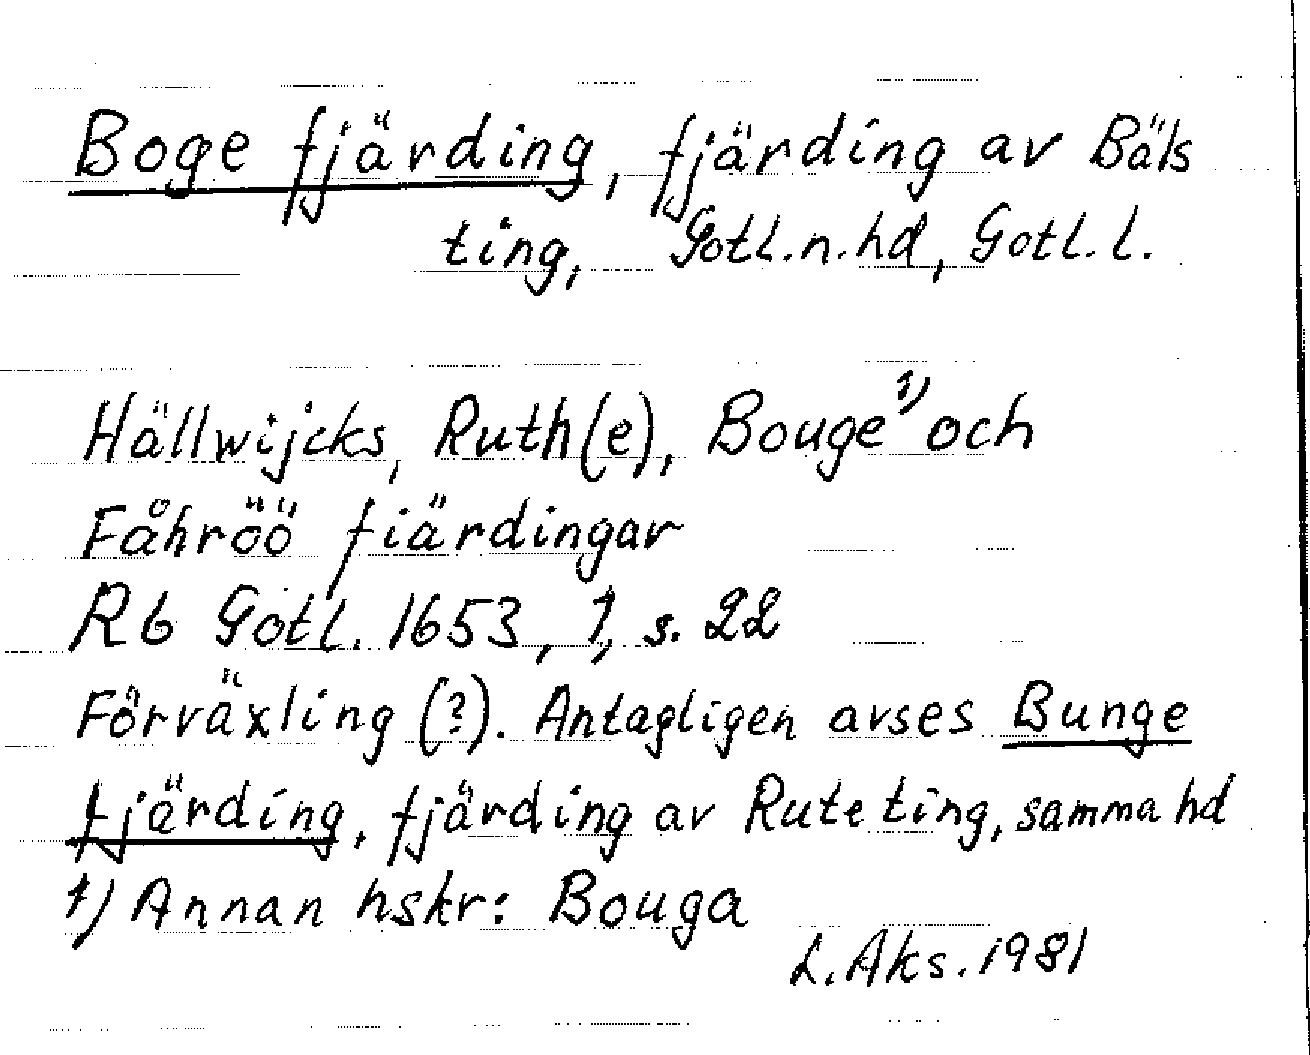 Boge fjärding, fjärding av Bäls
ting, Gotl.n.hd, Gotl.l.
Hällwijcks, Ruth(e), Bouge¹⁾ och
Fåhröö fiärdingar
Rb Gotl. 1653, 1, s. 22
Förväxling (?). Antagligen avses Bunge
fjärding, fjärding av Rute ting, samma hd
1) Annan hskr: Bouga
L. Aks. 1981